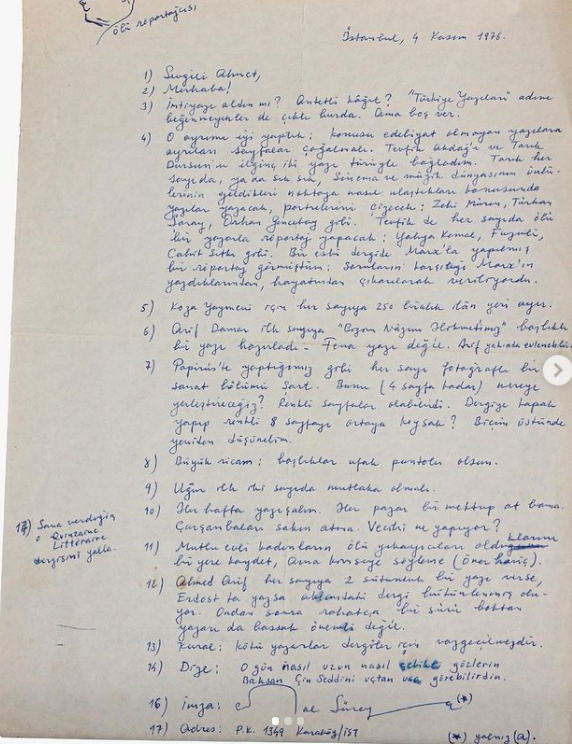 ölü reportajcısı
İstanbul, 4 Kasım 1976.
1) Sevgili Ahmet,
2) Merhaba!
3) İmtiyazı aldın mı? Antetli kâğıt? "Türkiye Yazıları" adını
beğenmeyenler de çıktı burda. Ama boş ver.
4) O ayrımı iyi yaptık: konusu edebiyat olmayan yazılara
ayrılan sayfalar çoğalmalı. Tevfik Akdağ'a ve Tarık
Dursun'u ilginç iki yazı türüyle bağladım. Tarık her
sayıda, ya da sık sık, sinema ve müzik dünyasının ünlü-
lerinin geldikleri noktaya nasıl ulaştıkları konusunda
yazılar yazacak, portrelerini çizecek: Zeki Müren, Türkan
Şoray, Orhan Gencebay gibi. Tevfik de her sayıda ölü
bir yazarla reportaj yapacak: Yahya Kemal, Fuzuli,
Cahit Sıtkı gibi. Bir eski dergide Marx'la yapılmış
bir reportaj görmüştüm: Soruların karşılığı Marx'ın
yazdıklarından, hayatından çıkarılarak veriliyordu.
5) Koza Yayınevi için her sayıya 250 liralık ilân yeri ayır.
6) Arif Damar ilk sayıya "Bizim Nâzım Hikmetimiz" başlıklı
bir yazı hazırladı. Fena yazı değil. Arif yakında evlenebilir.
7) Papirüs'te yaptığımız gibi her sayı fotoğraflı bir
sanat bölümü şart. Bunu (4 sayfa kadar) nereye
yerleştireceğiz? Renkli sayfalar olabilirdi. Dergiye kapak
yapıp renkli 8 sayfayı ortaya koysak? Biçim üstünde
yeniden düşünelim.
8) Büyük ricam: başlıklar ufak puntolu olsun.
9) Uğur ilk iki sayıda mutlaka olmalı.
10) Her hafta yazışalım. Her pazar bir mektup at bana.
Çarşambaları sakın atma. Vecihi ne yapıyor?
11) Mutlu evli kadınların ölü yıkayıcıları olduklarını
bir yere kaydet, ama kimseye söyleme (Öner hariç).
12) Ahmed Arif her sayıya 2 sütunluk bir yazı verse,
Erdost ta yazsa aklımdaki dergi bütünlenmiş olu-
yor. Ondan sonra rahatça bir sürü boktan
yazarı da bassak önemli değil.
13) Kural: Kötü yazarlar dergiler için vazgeçilmezdir.
14) Dize: O gün nasıl uzun nasıl çekikti gözlerin
Baksan Çin Seddini uçtan uca görebilirdin.
16) İmza: Cemal Süreya (*)
17) Adres: P.K. 1349 Karaköy/İST
(*) yalnız (a).
17) Sana verdiğim
o Quinzaine
Littéraire
dergisini yolla.